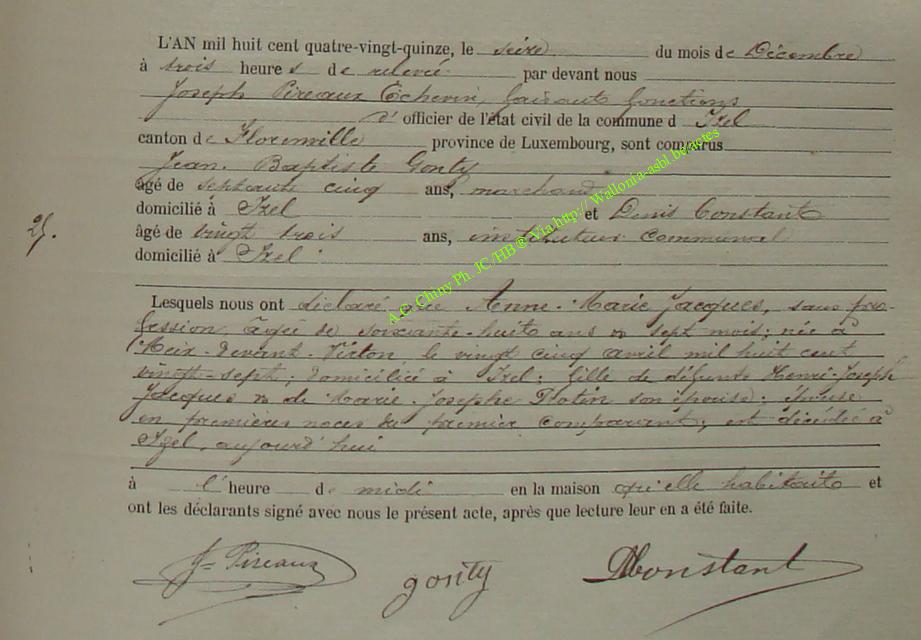 L'AN mil huit cent quatre-vingt-quinze, le seize du mois de Décembre
à trois heures de relevée par devant nous
Joseph Pireaux Echevin, faisant fonctions
d'officier de l'état civil de la commune d Izel
canton de Florenville province de Luxembourg, sont comparus
Jean-Baptiste Gonty
âgé de septante cinq ans, marchand
domicilié à Izel et Denis Constant
25.
âgé de vingt trois ans, instituteur communal
domicilié à Izel
A.C. Chiny Ph. JC/HB ® Via http:// Wallonia-asbl.be/actes
Lesquels nous ont déclaré que Anne-Marie Jacques, sans pro-
fession, âgée de soixante-huit ans & sept mois; née à
Meix-devant-Virton, le vingt cinq avril mil huit cent
vingt-sept; domiciliée à Izel; fille de défunts Henri-Joseph
Jacques & de Marie-Josephe son épouse; épouse
en premières noces du premier comparant; est décédée à
Izel, aujourd'hui
à l'heure de midi en la maison qu'elle habitait et
ont les déclarants signé avec nous le présent acte, après que lecture leur en a été faite.
Js Pireaux gonty DConstant